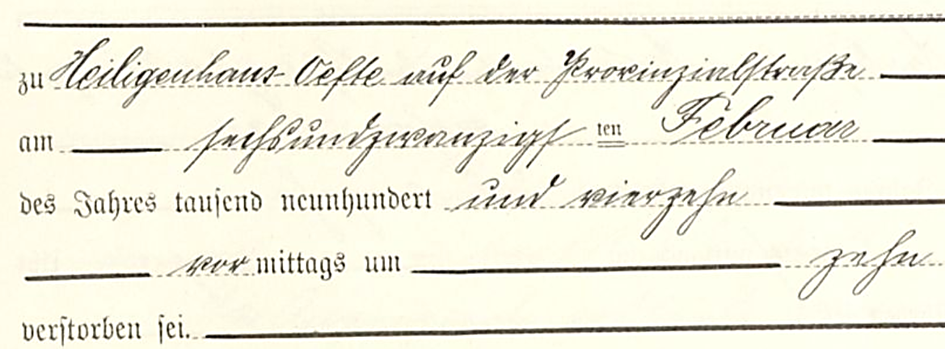 zu Heiligenhaus-Oefte auf der Provinzialstraße
am sechsundzwanzigsten Februar
des Jahres tausend neunhundert und vierzehn
vormittags um zehn
verstorben sei.